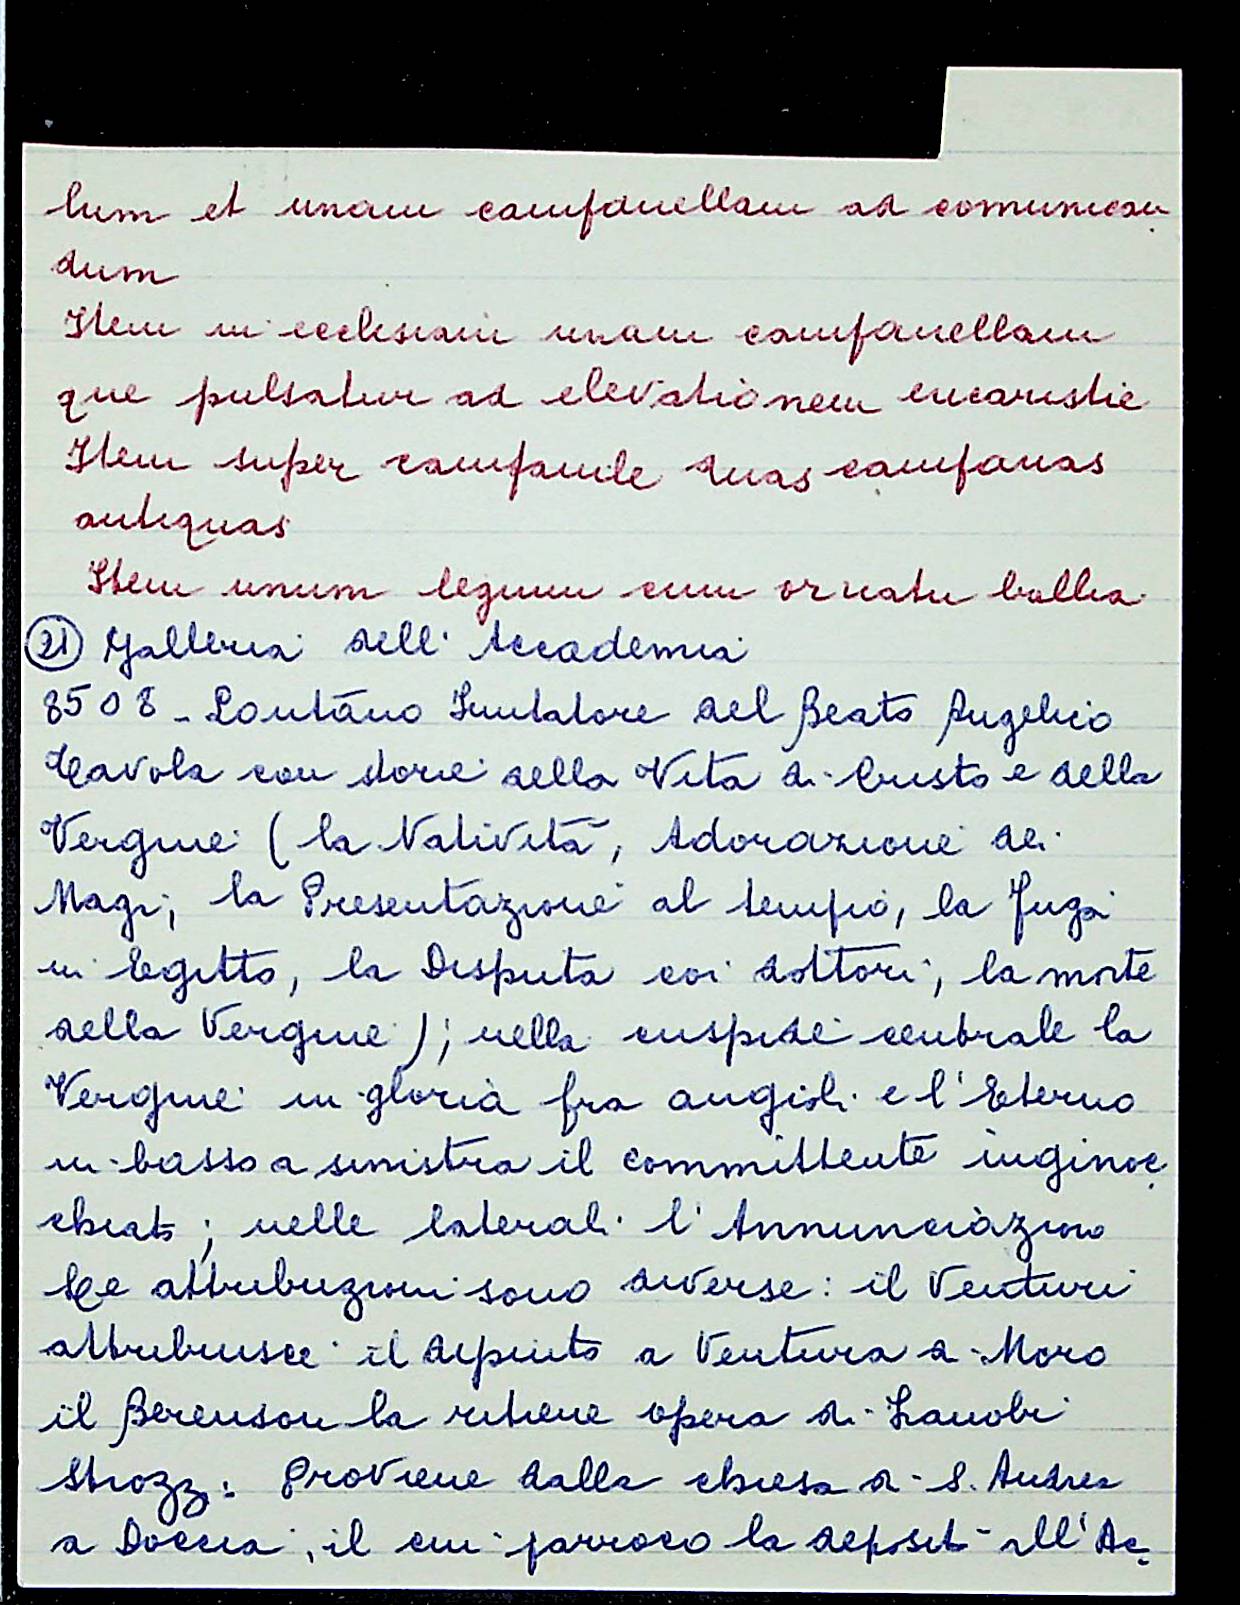 lum et unam campanellam ad comunican
dum
Item in ecclesiam unam campanellam
que pulsatur ad elevationem eucaristie
Item super campanile duas campanas
antiquas
Item unum legium cum ornatu
21 Galleria dell'Accademia
8508 - Lontano Imitatore del Beato Angelico
Tavola con storie della Vita di Cristo e della
Vergine (la Natività, Adorazione dei
Magi, la Presentazione al tempio, la Fuga
in Egitto, la Disputa coi dottori, la morte
della Vergine); nella cuspide centrale la
Vergine in gloria fra angioli e l'Eterno
in basso a sinistra il committente inginoc
chiato; nelle laterali l'Annunciazione
Le attribuzioni sono diverse: il Venturi
attribuisce il dipinto a Ventura di Moro
il Berenson la ritiene opera di Zanobi
Strozzi. Proviene dalla chiesa di S. Andrea
a Doccia, il cui parroco la depositò all'Ac